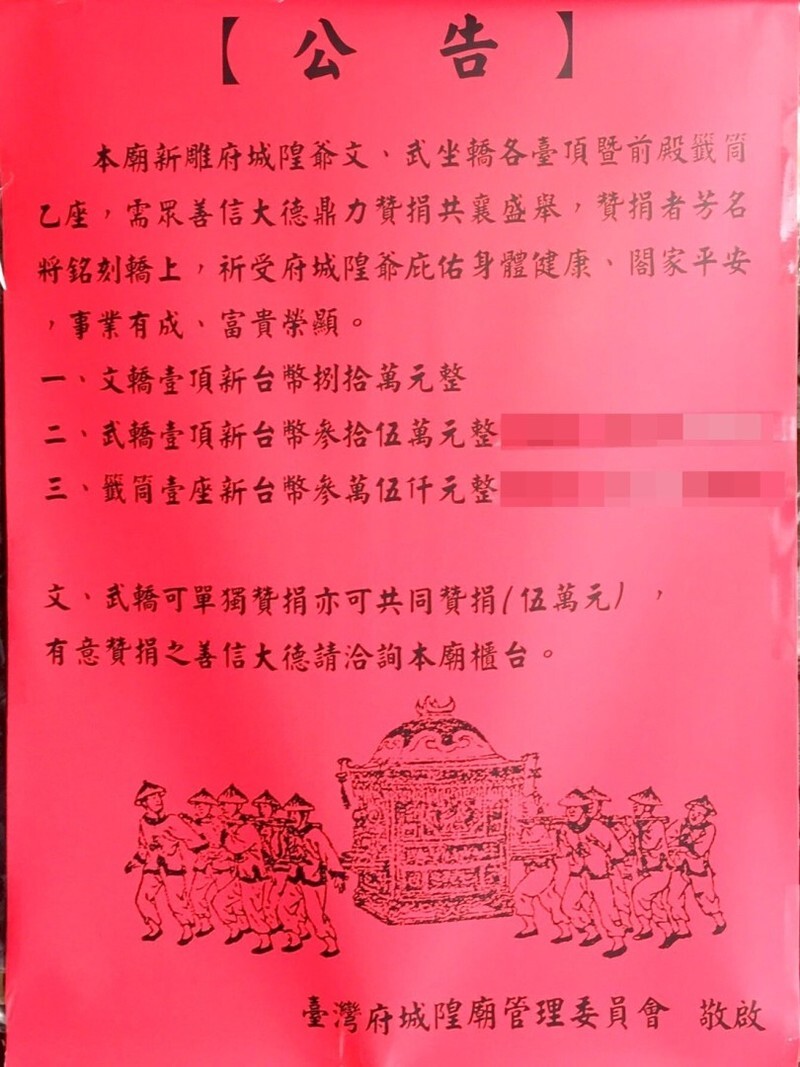 【公告】
本廟新雕府城隍爺文、武坐轎各臺頂暨前殿籤筒
乙座，需眾善信大德鼎力贊捐共襄盛舉，贊捐者芳名
將銘刻轎上，祈受府城隍爺庇佑身體健康、閤家平安
，事業有成、富貴榮顯。
一、文轎壹頂新台幣捌拾萬元整
二、武轎壹頂新台幣參拾伍萬元整
三、籤筒壹座新台幣參萬伍仟元整
文、武轎可單獨贊捐亦可共同贊捐(伍萬元)，
有意贊捐之善信大德請洽詢本廟櫃台。
臺灣府城隍廟管理委員會 敬啟